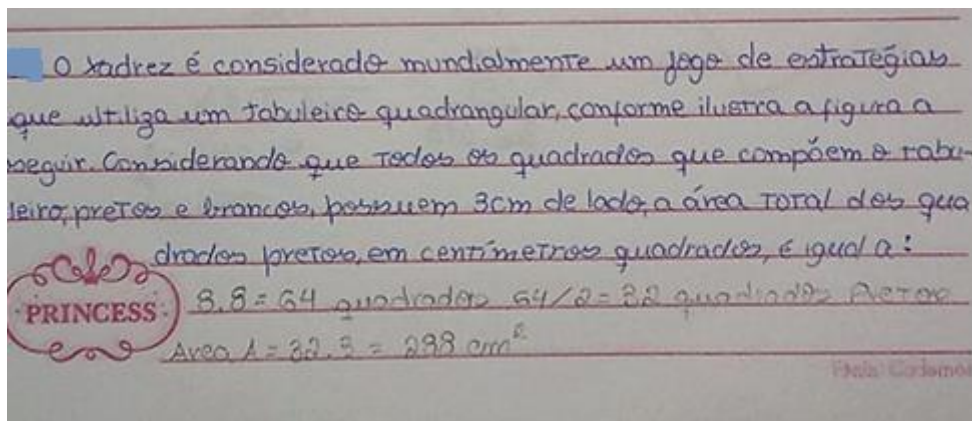 O xadrez é considerado mundialmente um jogo de estrategias
que ultiliza um tabuleiro quadrangular, conforme ilustra a figura a
seguir. Considerando que todos os quadrados que compõem o tabu-
leiro, pretos e brancos, possuem 3cm de lado, a área total dos qua
drados pretos, em centímetros quadrados, é igual a:
PRINCESS
8.8 = 64 quadrados 64/2 = 32 quadrados Pretos
Area A = 32.9 = 288 cm²